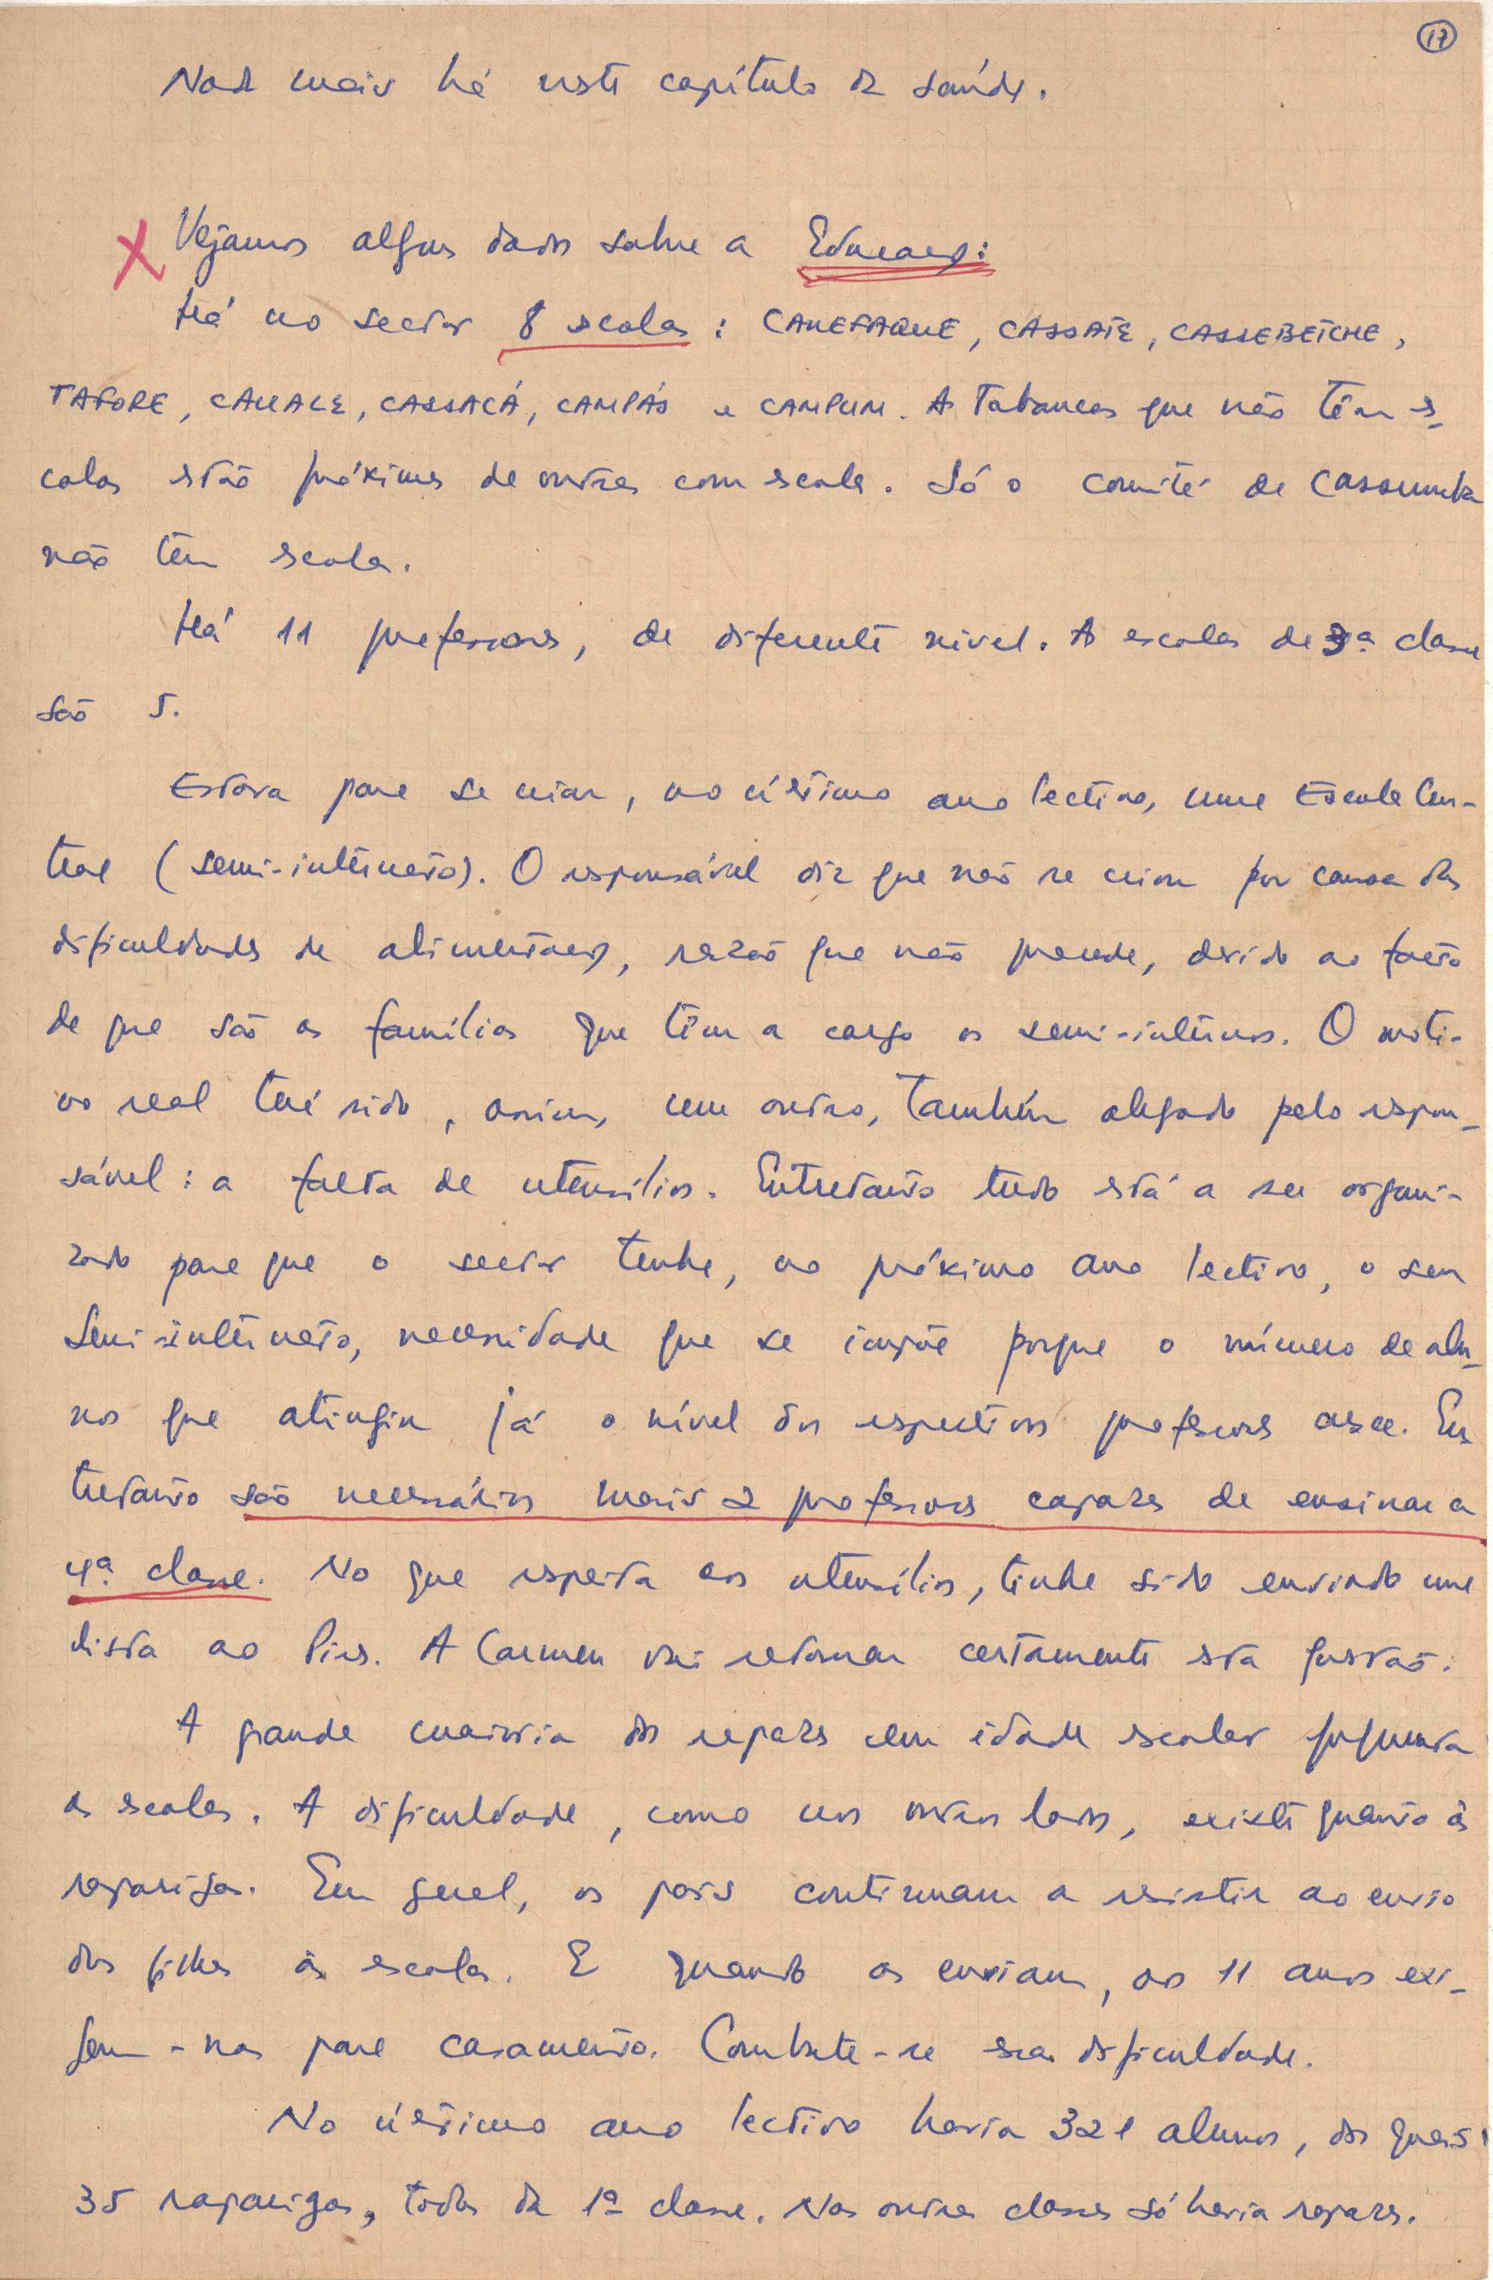 17
Nada mais há neste capítulo da saúde.
X Vejamos alguns dados sobre a Educação:
Há no sector 8 escolas: CANEFAQUE, CASSATE, CASSEBETCHE,
TAFORE, CAUALE, CASSACÁ, CAMPÁS e CAMPUM. As Tabancas que não têm es-
colas estão próximas de outras com escola. Só o comité de CASSUMBA
não tem escola.
Há 11 professores, de diferente nível. As escolas de 3ª classe
são 5.
Estava para se criar, no último ano lectivo, uma Escola Cen-
tral (semi-internato). O responsável diz que não se criou por causa das
dificuldades de alimentação, razão que não procede, devido ao facto
de que são as famílias que têm a cargo os semi-internos. O moti-
vo real terá sido, assim, um outro, também alegado pelo respon-
sável: a falta de utensílios. Entretanto tudo está a ser organi-
zado para que o sector tenha, no próximo ano lectivo, o seu
semi-internato, necessidade que se impõe porque o número de alu-
nos que atingiu já o nível dos respectivos professores cresce. En
tretanto são necessários mais 2 professores capazes de ensinar a
4ª classe. No que respeita aos utensílios, tinha sido enviado uma
lista ao Pires. A Carmen vai retomar certamente esta questão.
A grande maioria dos rapazes em idade escolar frequenta
as escolas. A dificuldade, como nos outros lados, existe quanto às
raparigas. Em geral, os pais continuam a resistir ao envio
das filhas às escolas. E quando as enviam, aos 11 anos exi-
gem-nas para casamento. Combate-se essa dificuldade.
No último ano lectivo havia 321 alunos, dos quais
35 raparigas, todas da 1ª classe. Nas outras classes só havia rapazes.